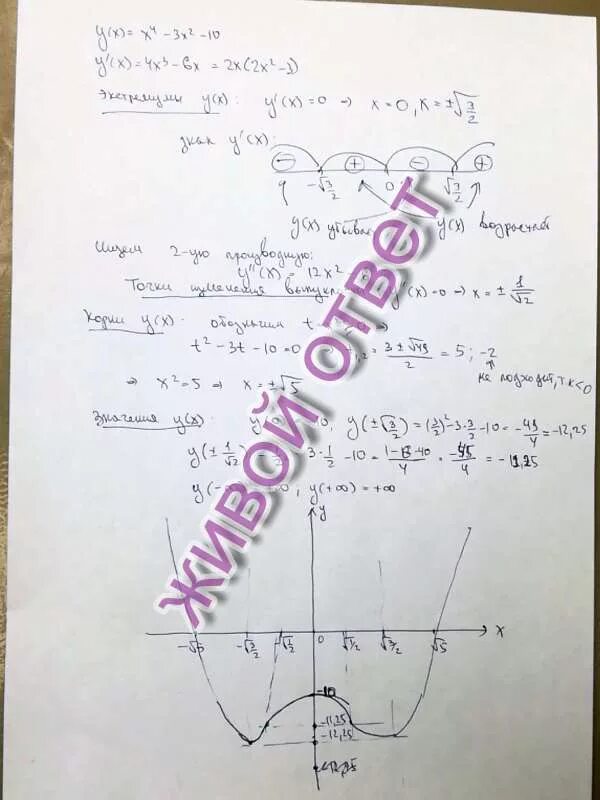 y(x) = x⁴ - 3x² - 10
y'(x) = 4x³ - 6x = 2x(2x² - 3)
Экстремумы y(x): y'(x) = 0 → x = 0, x = ±√3/2
знак y'(x):
- + - +
-√3/2 0 √3/2
y(x) y(x) возрастает
Ищем 2-ую производную:
y''(x) = 12x²
Точки изменения y''(x) = 0 → x = ± 1/√2
Корни y(x): обозначим t
t² - 3t - 10 = 0 = 3 ± √49/2 = 5; -2
не подходит, т.к <0
⇒ x² = 5 ⇒ x = ±√5
Значения y(x): y(±√3/2) = (3/2)² - 3·3/2 - 10 = -49/4 = -12,25
y(± 1/√2) 3·1/2 - 10 = = -11,25
y(- ; y(+∞) = +∞
y
x
-√5 -√3/2 -√1/2 0 √1/2 √3/2 √5
-10
-11,25
-12,25
ЖИВОЙ ОТВЕТ